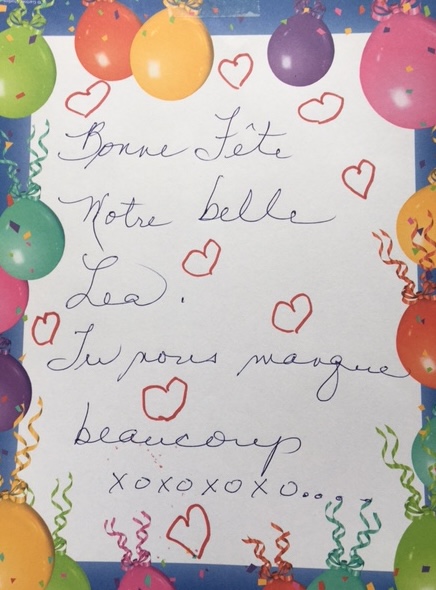 Bonne Fête
Notre belle
Lea.
Tu nous manque
beaucoup
xoxoxoxo....